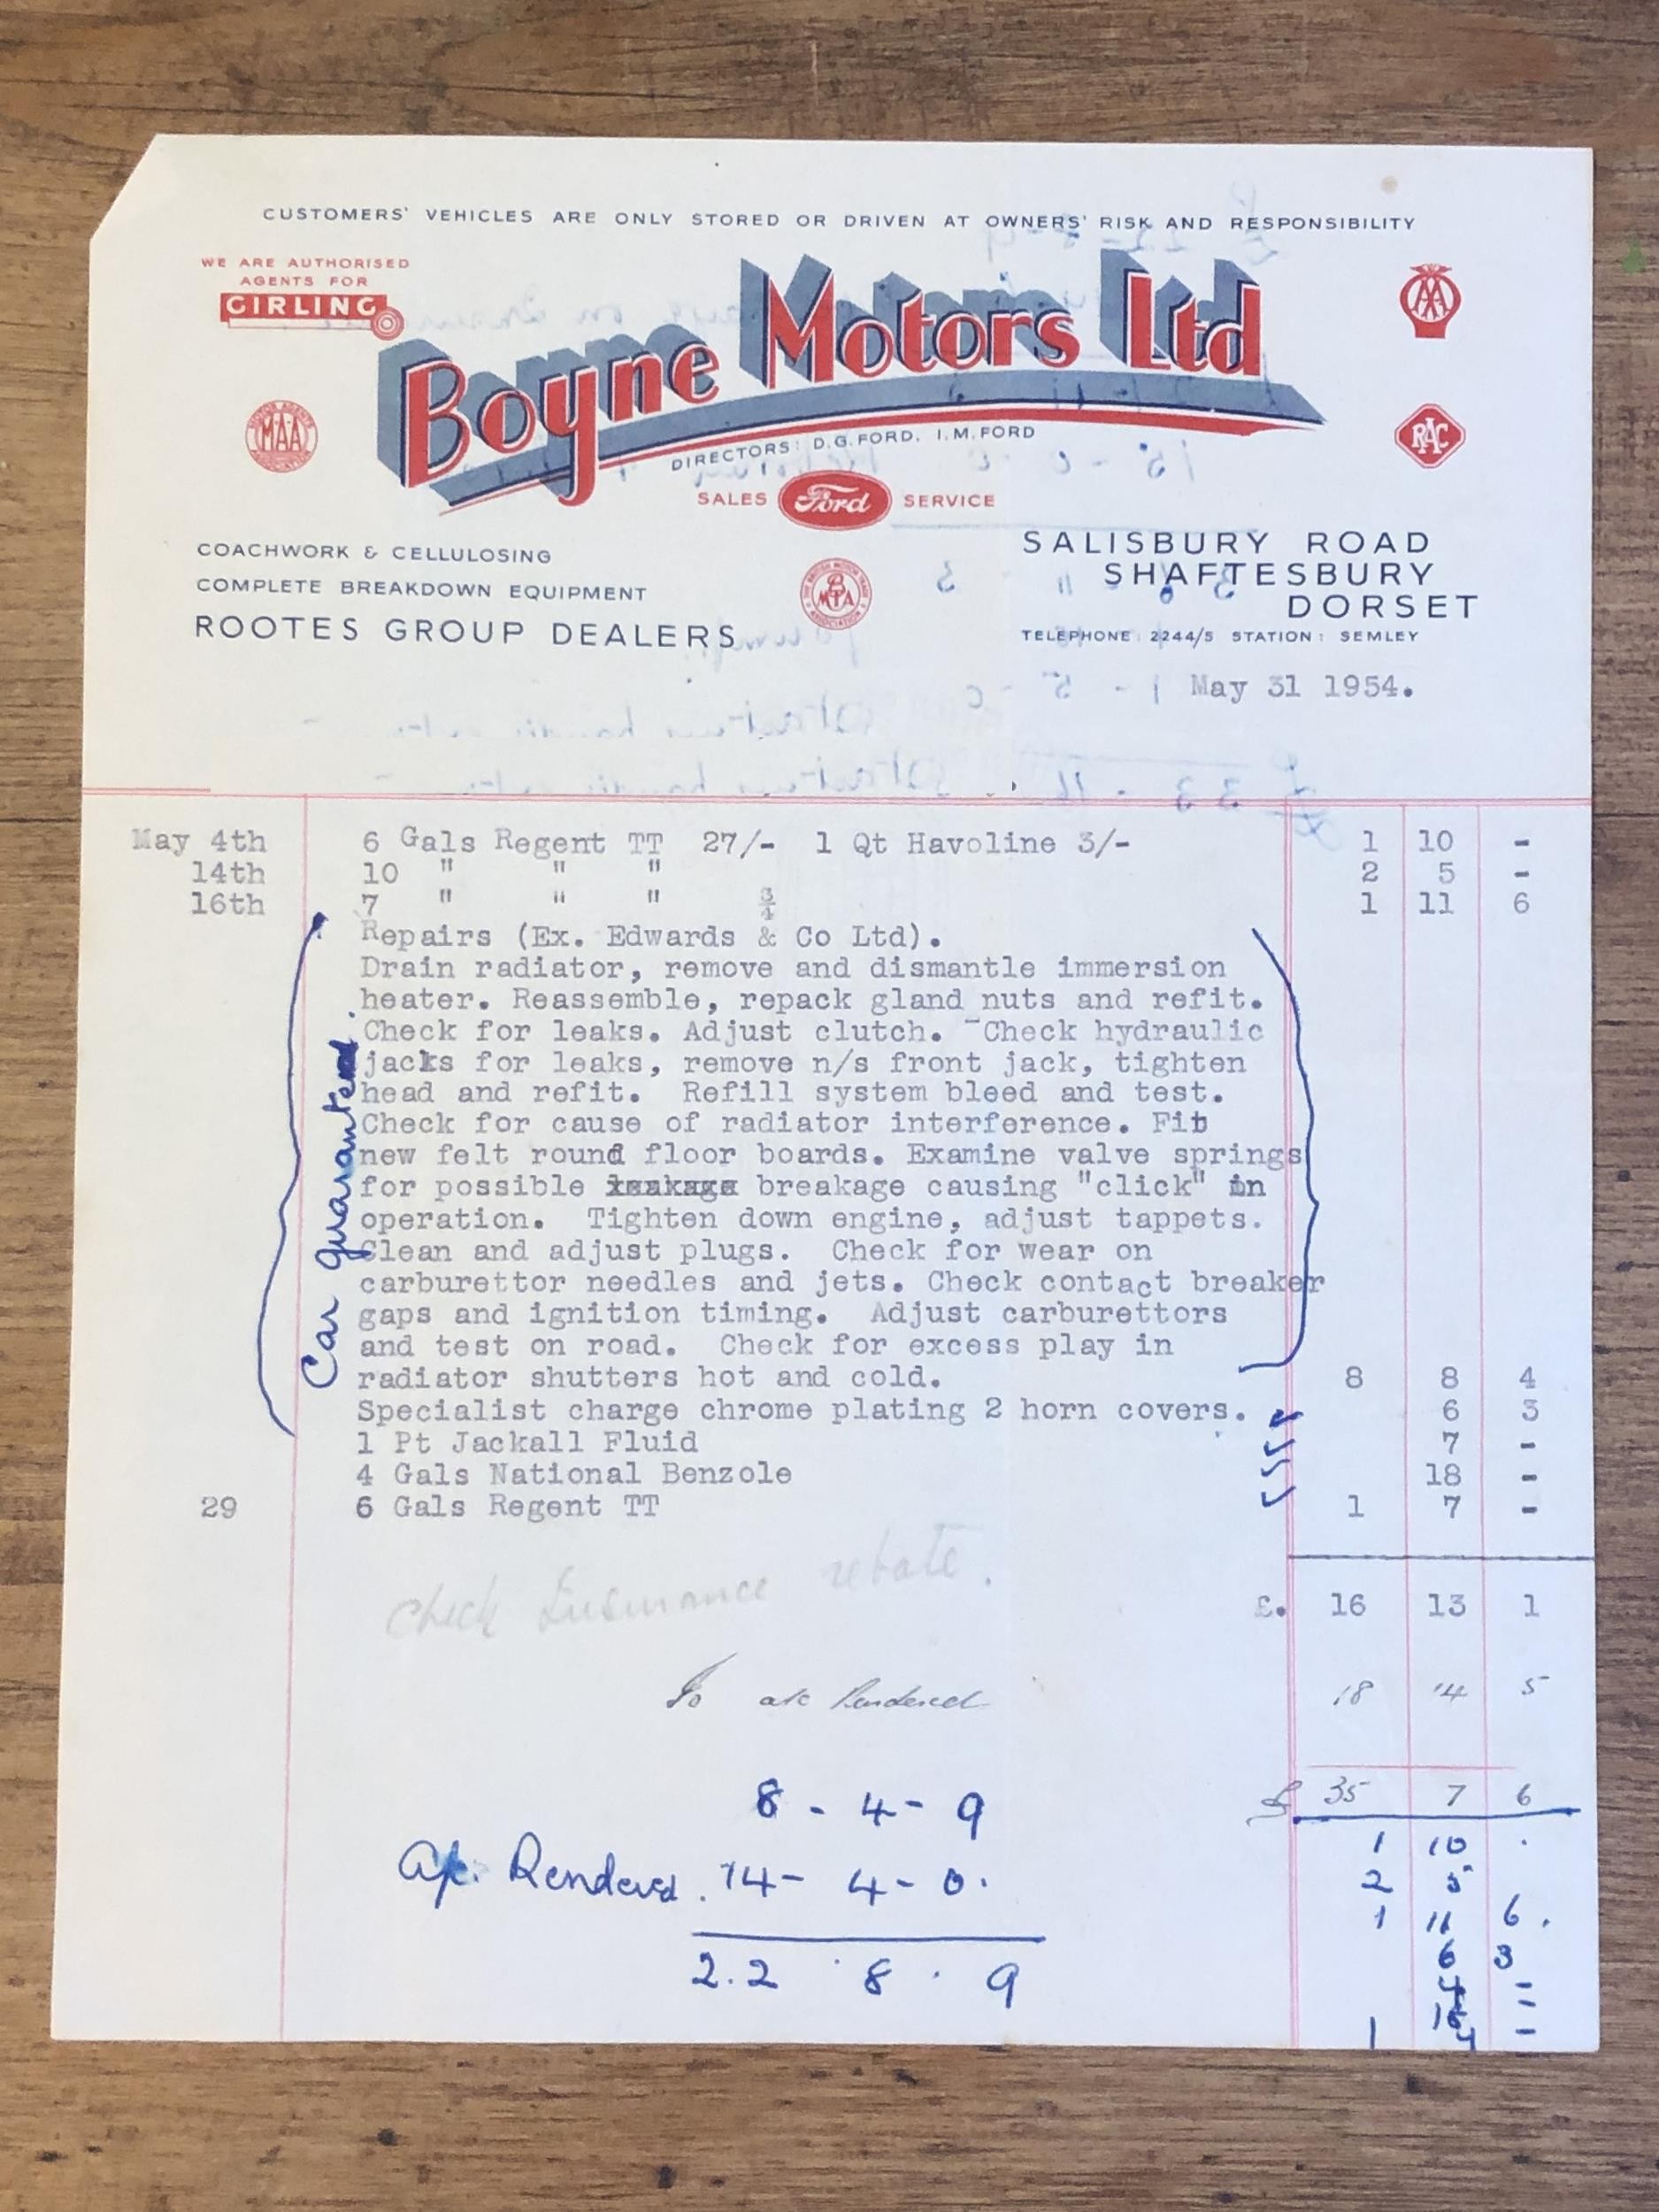 CUSTOMERS' VEHICLES ARE ONLY STORED OR DRIVEN AT OWNERS' RISK AND RESPONSIBILITY
WE ARE AUTHORISED
AGENTS FOR
GIRLING
Boyne Motors Ltd
AA
MAA
RAC
DIRECTORS: D.G.FORD. I.M.FORD
SALES Ford SERVICE
COACHWORK & CELLULOSING
COMPLETE BREAKDOWN EQUIPMENT
ROOTES GROUP DEALERS
THE BRITISH MOTOR TRADE ASSOCIATION
BMTA
SALISBURY ROAD
SHAFTESBURY
DORSET
TELEPHONE: 2244/5 STATION: SEMLEY
May 31 1954.
May 4th 6 Gals Regent TT 27/- 1 Qt Havoline 3/- 1 10 -
14th 10 " " " 2 5 -
16th 7 " " " 3/4 1 11 6
Repairs (Ex. Edwards & Co Ltd).
Drain radiator, remove and dismantle immersion
heater. Reassemble, repack gland nuts and refit.
Check for leaks. Adjust clutch. Check hydraulic
jacks for leaks, remove n/s front jack, tighten
head and refit. Refill system bleed and test.
Check for cause of radiator interference. Fit
new felt round floor boards. Examine valve springs
for possible breakage causing "click" in
operation. Tighten down engine, adjust tappets.
Clean and adjust plugs. Check for wear on
carburettor needles and jets. Check contact breaker
gaps and ignition timing. Adjust carburettors
and test on road. Check for excess play in
radiator shutters hot and cold. 8 8 4
Car guaranteed.
Specialist charge chrome plating 2 horn covers. 6 3
1 Pt Jackall Fluid 7 -
4 Gals National Benzole 18 -
29 6 Gals Regent TT 1 7 -
check Insurance rebate.
£. 16 13 1
To a/c Rendered 18 14 5
£ 35 7 6
8 - 4 - 9
A/c. Rendered. 14 - 4 - 0.
2.2 . 8 . 9
1 10 .
2 5
1 11 6.
6 3